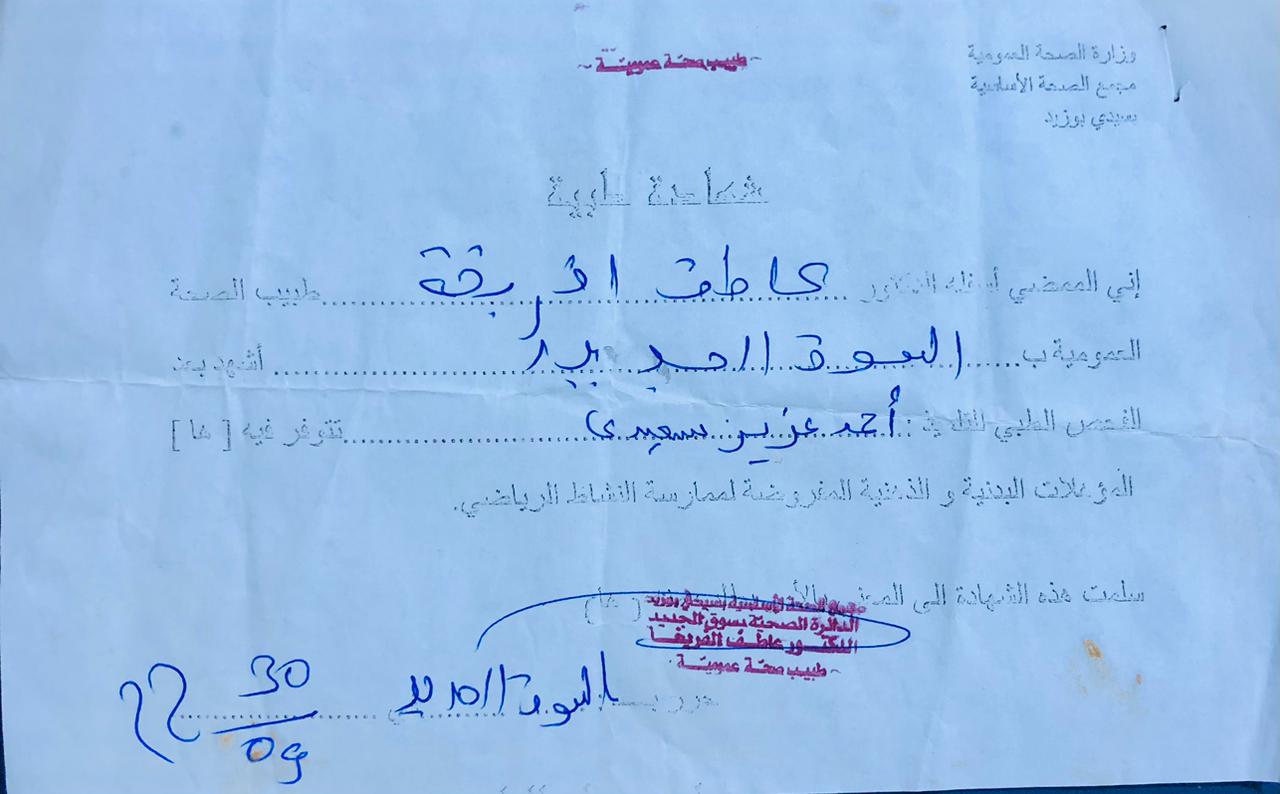 وزارة الصحة العمومية
مجمع الصحة الأساسية
سيدي بوزيد
~ طبيب صحة عموميّة ~
شهادة طبية
إني الممضي أسفله الدكتور عاطف الفريقة طبيب الصحة
العمومية ب السوق الجديد أشهد بعد
الفحص الطبي للتلميذ : أحمد عزيز سعيدي تتوفر فيه [ ها ]
المؤهلات البدنية و الذهنية المفروضة لممارسة النشاط الرياضي.
سلمت هذه الشهادة الى المعني [ ها ]
مجمع الصحة الأساسية بسيدي بوزيد
الدائرة الصحية بسوق الجديد
الدكتور عاطف الفريخا
~ طبيب صحة عموميّة ~
حرر ب السوق الجديد في 30/09